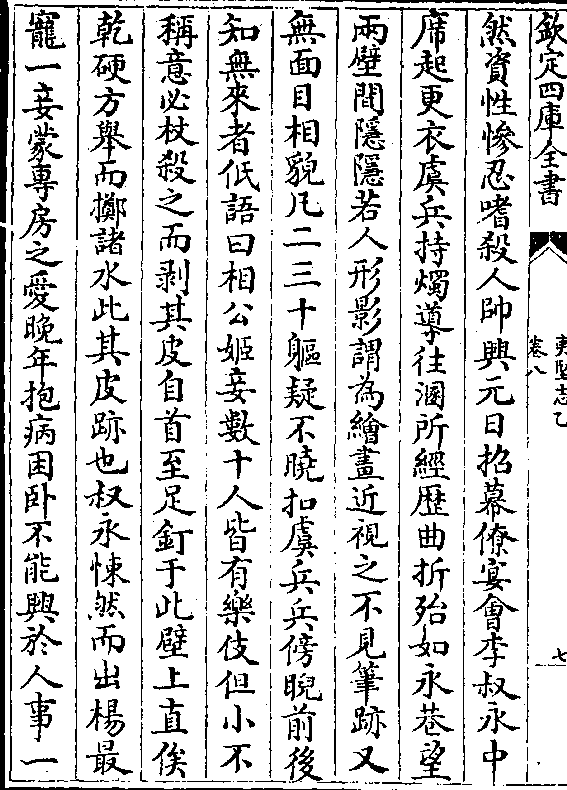 欽定四庫全書
夷堅志乙
卷八
七
然資性慘忍嗜殺人帥興元日招幕僚宴會李叔永中
席起更衣虞兵持燭導往溷所經歴曲折殆如永巷望
兩壁間隱隱若人形影謂為繪畫近視之不見筆跡又
無面目相貌凡二三十軀疑不曉扣虞兵兵傍睨前後
知無來者低語曰相公姬妾數十人皆有樂伎但小不
稱意必杖殺之而剥其皮自首至足釘于此壁上直俟
乾硬方舉而擲諸水此其皮跡也叔永悚然而出楊最
寵一妾蒙專房之愛晚年抱病困卧不能興於人事一